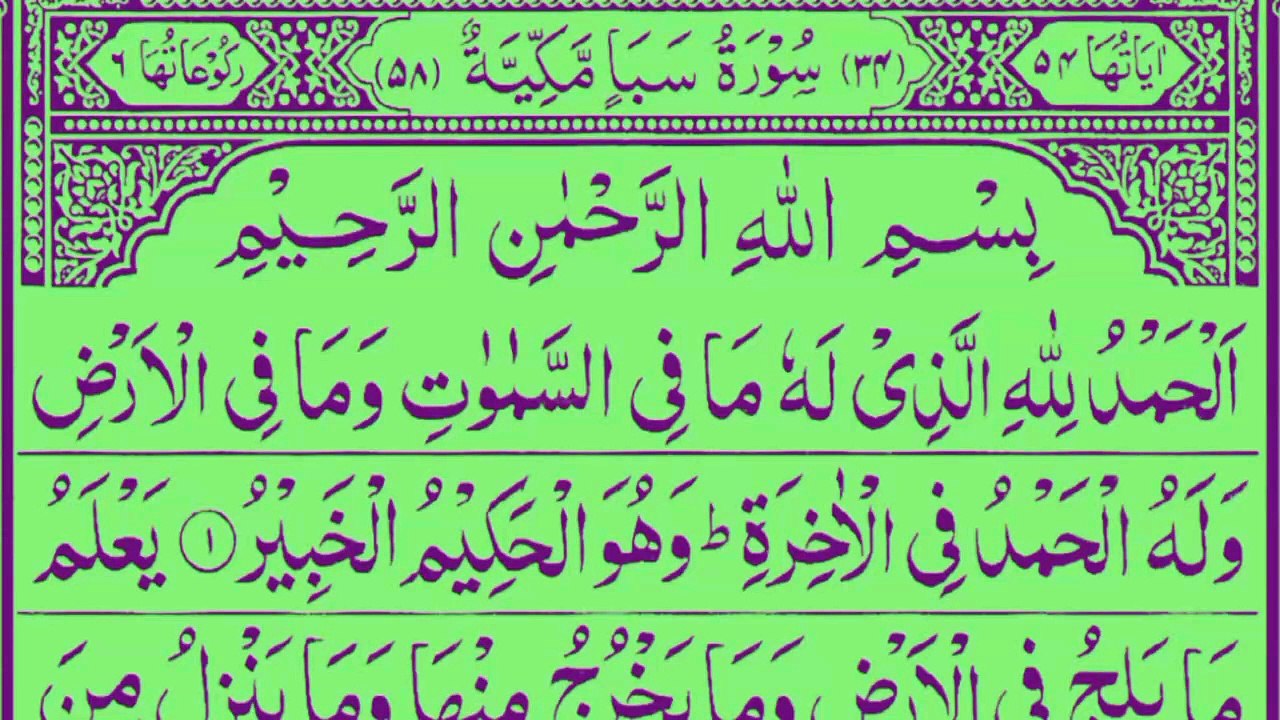 اٰيَاتُهَا ٥٤ (٣٤) سُوْرَةُ سَبَاٍ مَّكِّيَّةٌ (٥٨) رُكُوْعَاتُهَا ٦
بِسْمِ اللّٰهِ الرَّحْمٰنِ الرَّحِيْمِ
اَلْحَمْدُ لِلّٰهِ الَّذِىْ لَهٗ مَا فِى السَّمٰوٰتِ وَمَا فِى الْاَرْضِ
وَلَهُ الْحَمْدُ فِى الْاٰخِرَةِ ؕ وَهُوَ الْحَكِيْمُ الْخَبِيْرُ ١ يَعْلَمُ
مَا يَلِجُ فِى الْاَرْضِ وَمَا يَخْرُجُ مِنْهَا وَمَا يَنْزِلُ مِنَ